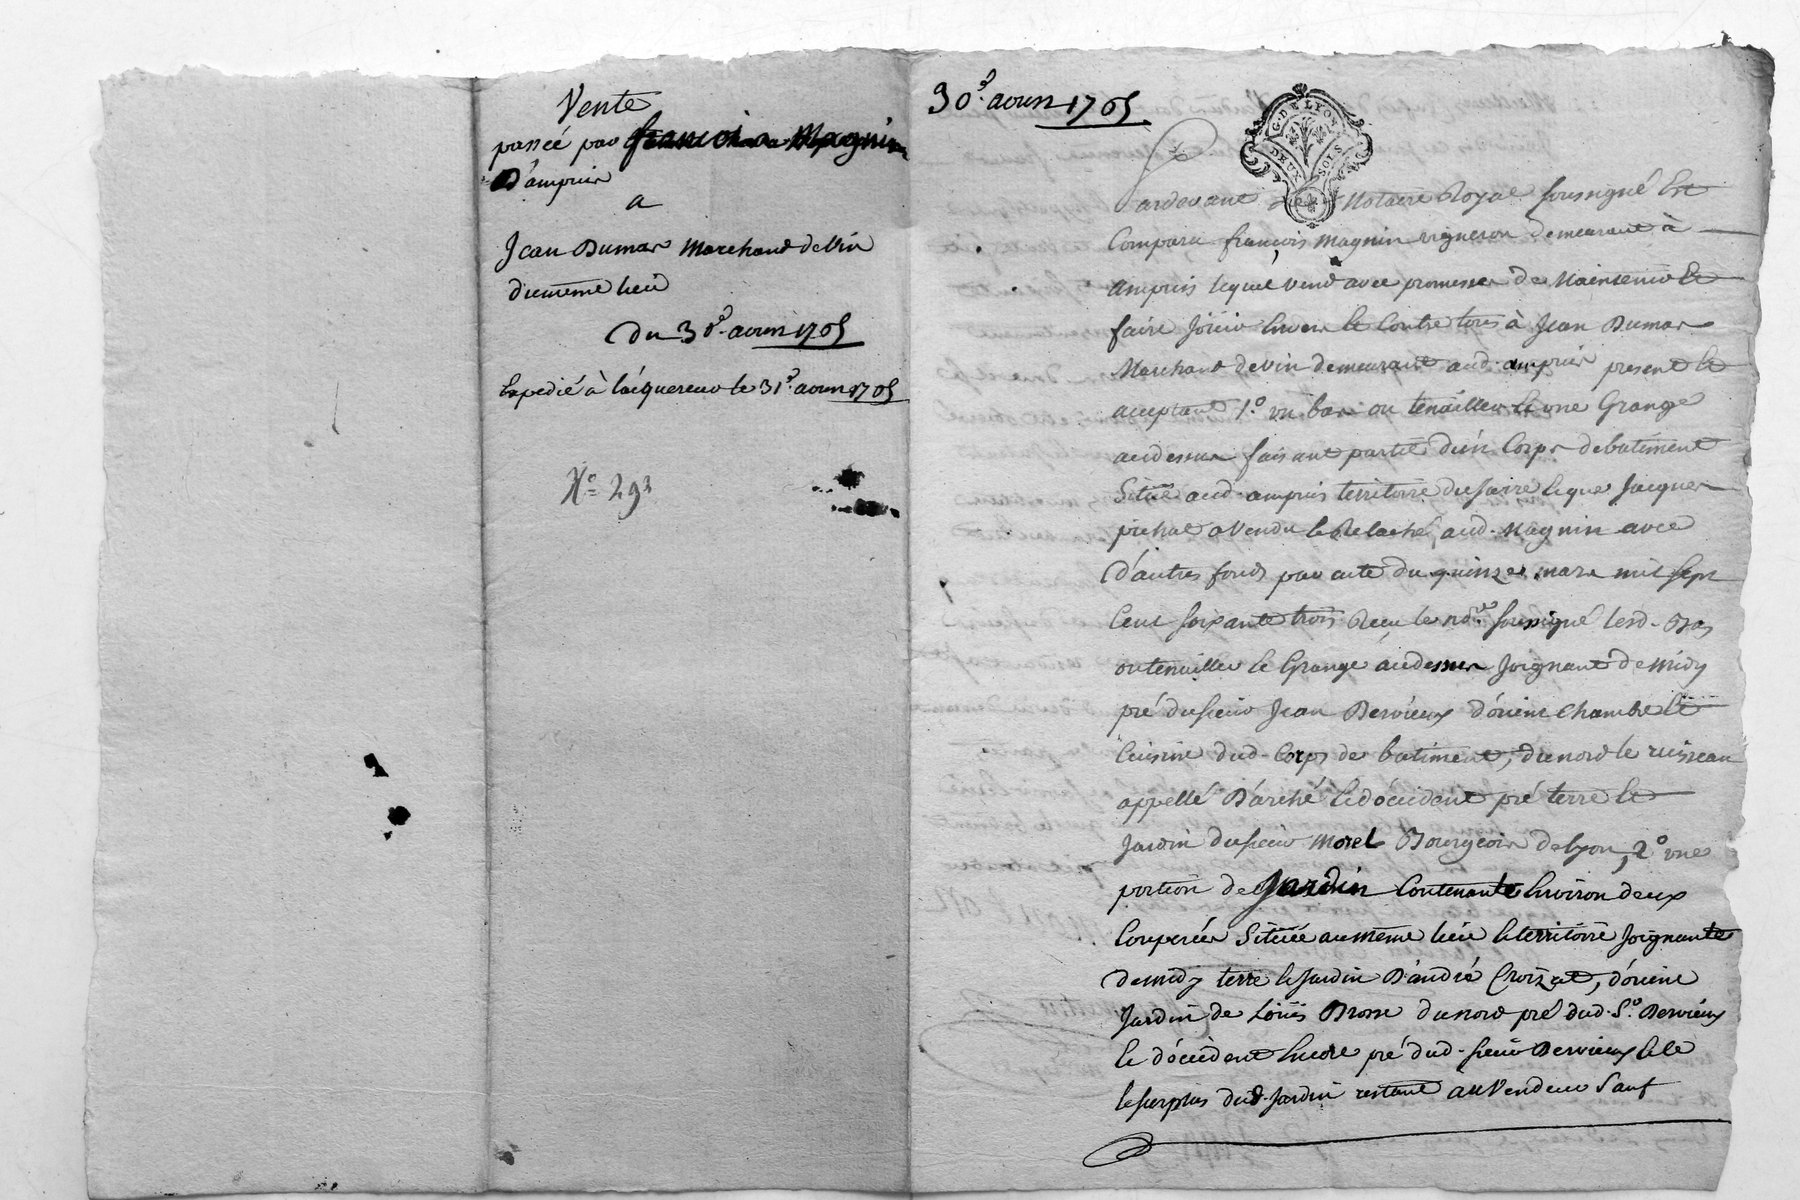 Vente
passée par françois Magnin
D'ampuis
a
Jean Dumas Marchand de Vin
du même lieu
Du 30e. aoust 1765
Expedié à l'acquereur le 31e. aoust 1765
No. 293
30e. aoust 1765
G. DE LYON
DEUX SOLS
Pardevant Le Notaire Royal soussigné Est
Comparu françois Magnin vigneron demeurant à
ampuis lequel vend avec promesse de Maintenir Et
faire Jouir Envers Et Contre tous à Jean Dumas
Marchand de vin demeurant aud. ampuis present Et
acceptant 1o. un bas ou tenailler Et une Grange
audessus faisant partie d'un Corps de batiment
Situé aud. ampuis territoire du que Jacques
a Vendu Et Relaché aud. Magnin avec
d'autres fonds par acte du quinze mars mil sept
Cent soixante trois Reçu le nore. soussigné Lesd. Bas
ou tenailler Et Grange audessus Joignant de midy
pré du sieur Jean Dervieux d'orient Chambre Et
Cuisine dud. Corps de batiment, du nord le ruisseau
appellé D'arché Et d'occident pré terre Et
Jardin du sieur Morel Bourgeois de Lyon, 2o une
portion de Jardin Contenante Environ deux
Couperées Située au même lieu Et territoire Joignante
de midy terre Et Jardin D'andré Croizat, d'orient
Jardin de Loüis Brosse du nord pré dud. Sr. Dervieux
Et d'occident Encore pré dud. sieur Dervieux Et le
le surplus dud. Jardin restant au Vendeur Sauf